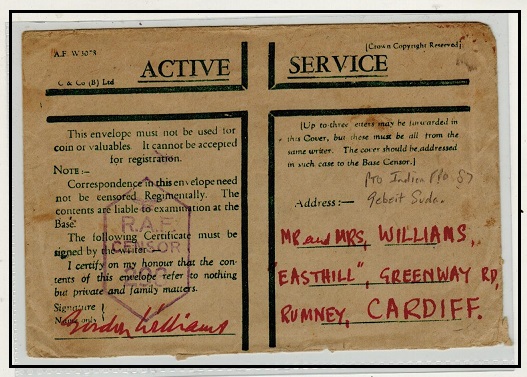 A.F. W3078
C & Co (B) Ltd
[Crown Copyright Reserved]
ACTIVE SERVICE
This envelope must not be used for
coin or valuables. It cannot be accepted
for registration.
NOTE :—
Correspondence in this envelope need
not be censored Regimentally. The
contents are liable to examination at the
Base.
The following Certificate must be
signed by the writer:—
I certify on my honour that the con-
tents of this envelope refer to nothing
but private and family matters.
Signature
Name only
Gordon Williams
R.A.F.
CENSOR
[Up to three letters may be forwarded in
this Cover, but these must be all from the
same writer. The cover should be addressed
in such case to the Base Censor.]
Pro Indian P/O 87
Gebeit Sudan.
Address :—
MR and MRS, WILLIAMS,
"EASTHILL", GREENWAY RD,
RUMNEY, CARDIFF.